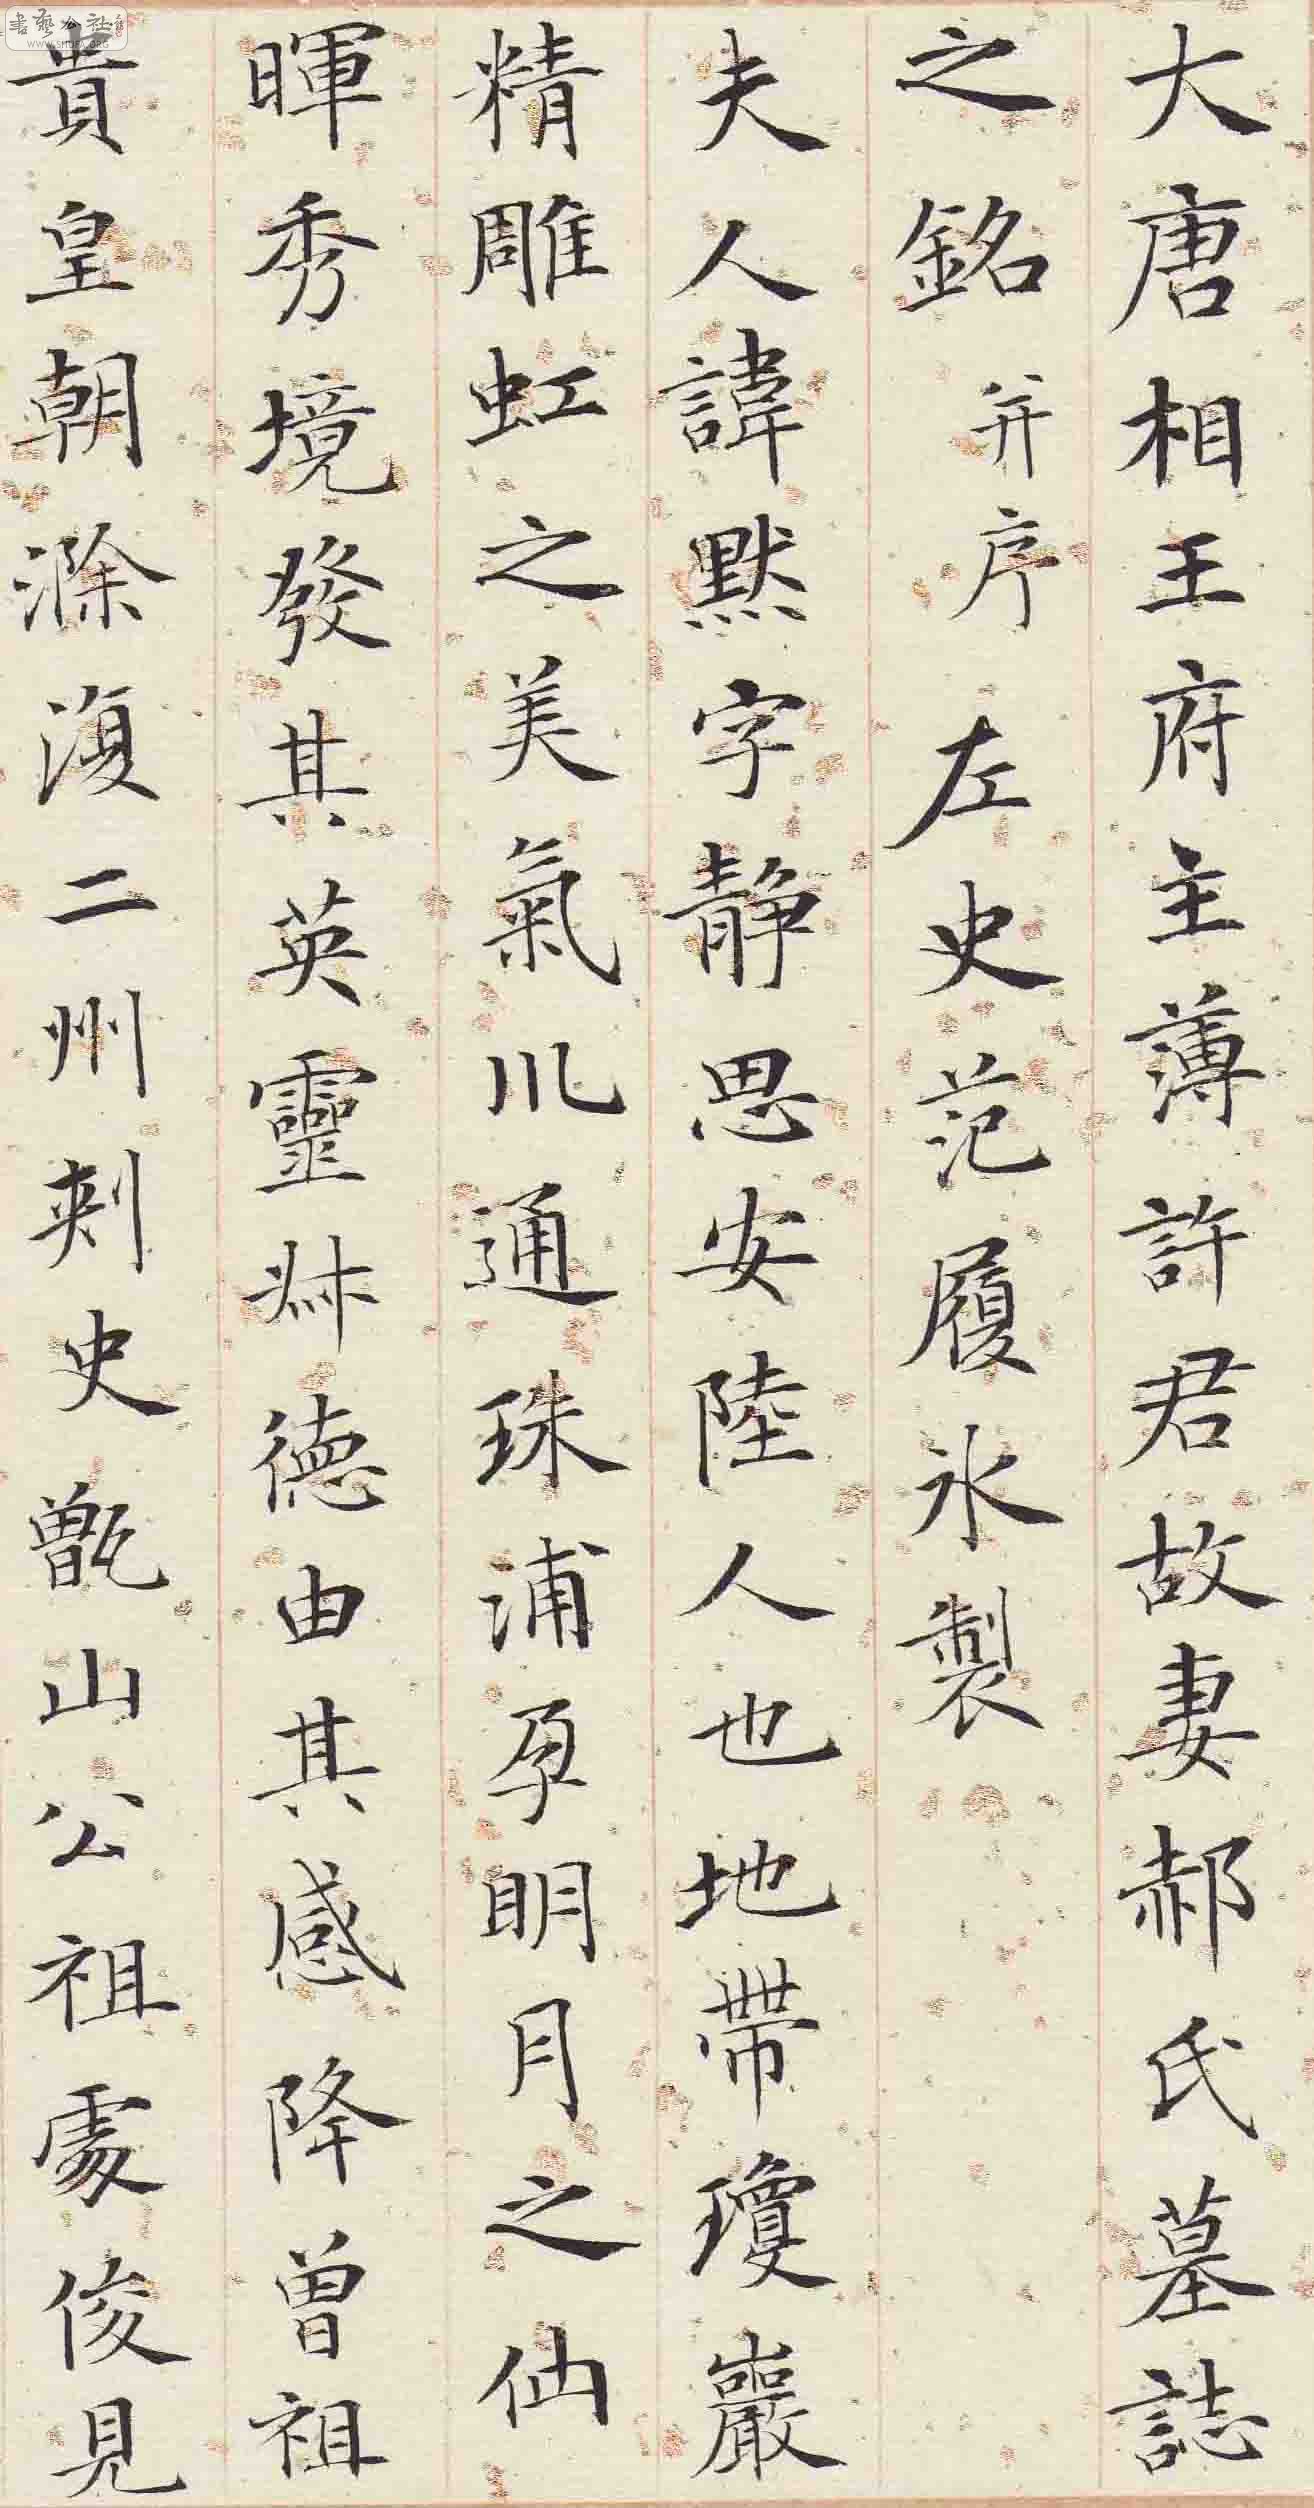 書藝公社
WWW.SHUFA.ORG
大唐相王府主薄許君故妻郝氏墓誌
之銘 并序 左史范履冰製
夫人諱默字静思安陸人也地帶瓊巖
精雕虹之美氣川通珠浦孕明月之仙
暉秀境發其英靈淋德由其感降曾祖
貴皇朝滁澓二州刾史甑山公祖處俊見